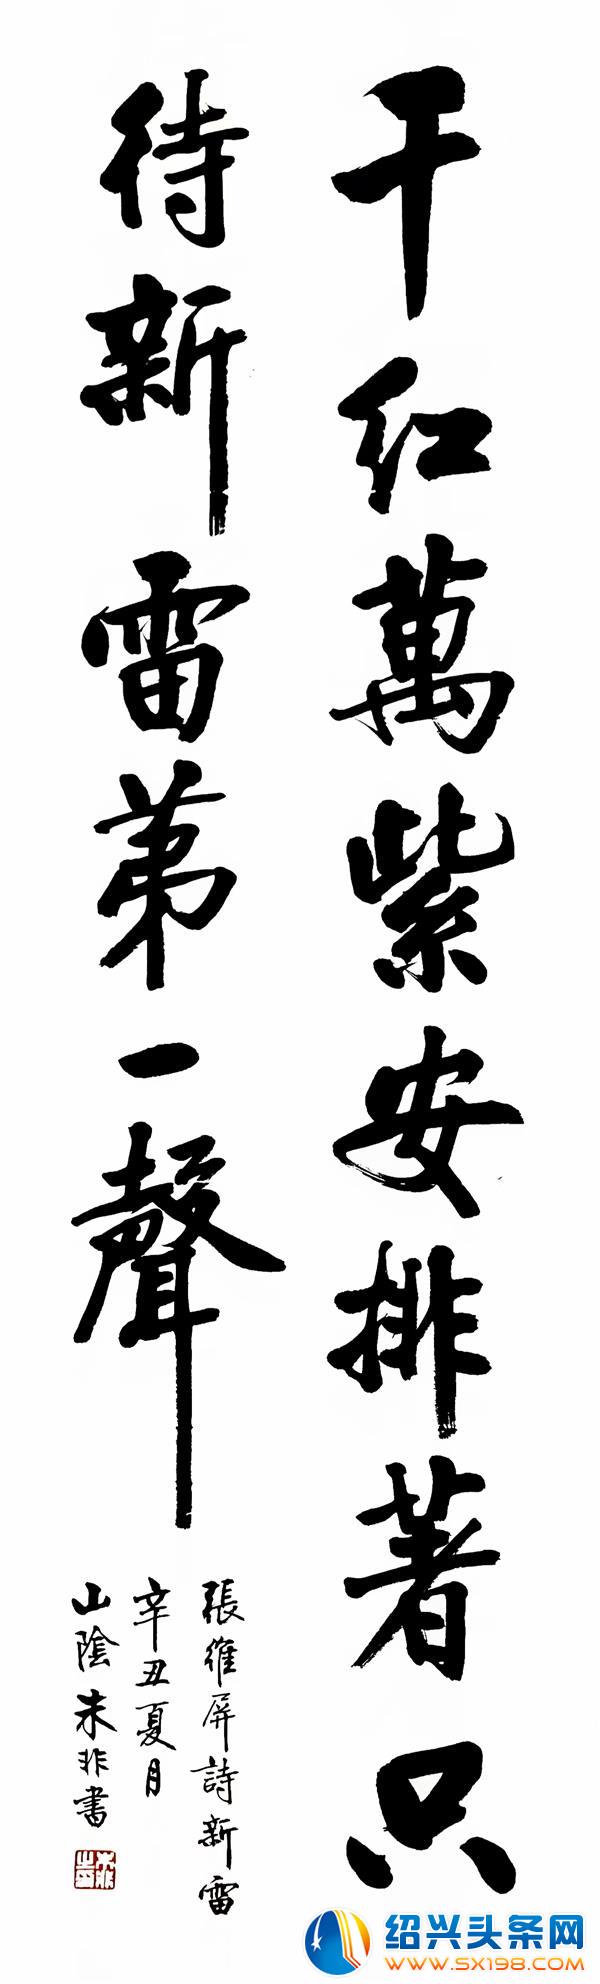 千红萬紫安排著只
待新雷苐一聲
張維屏詩新雷
辛丑夏月
山陰朱非書
绍兴头条网
WWW.SX198.COM